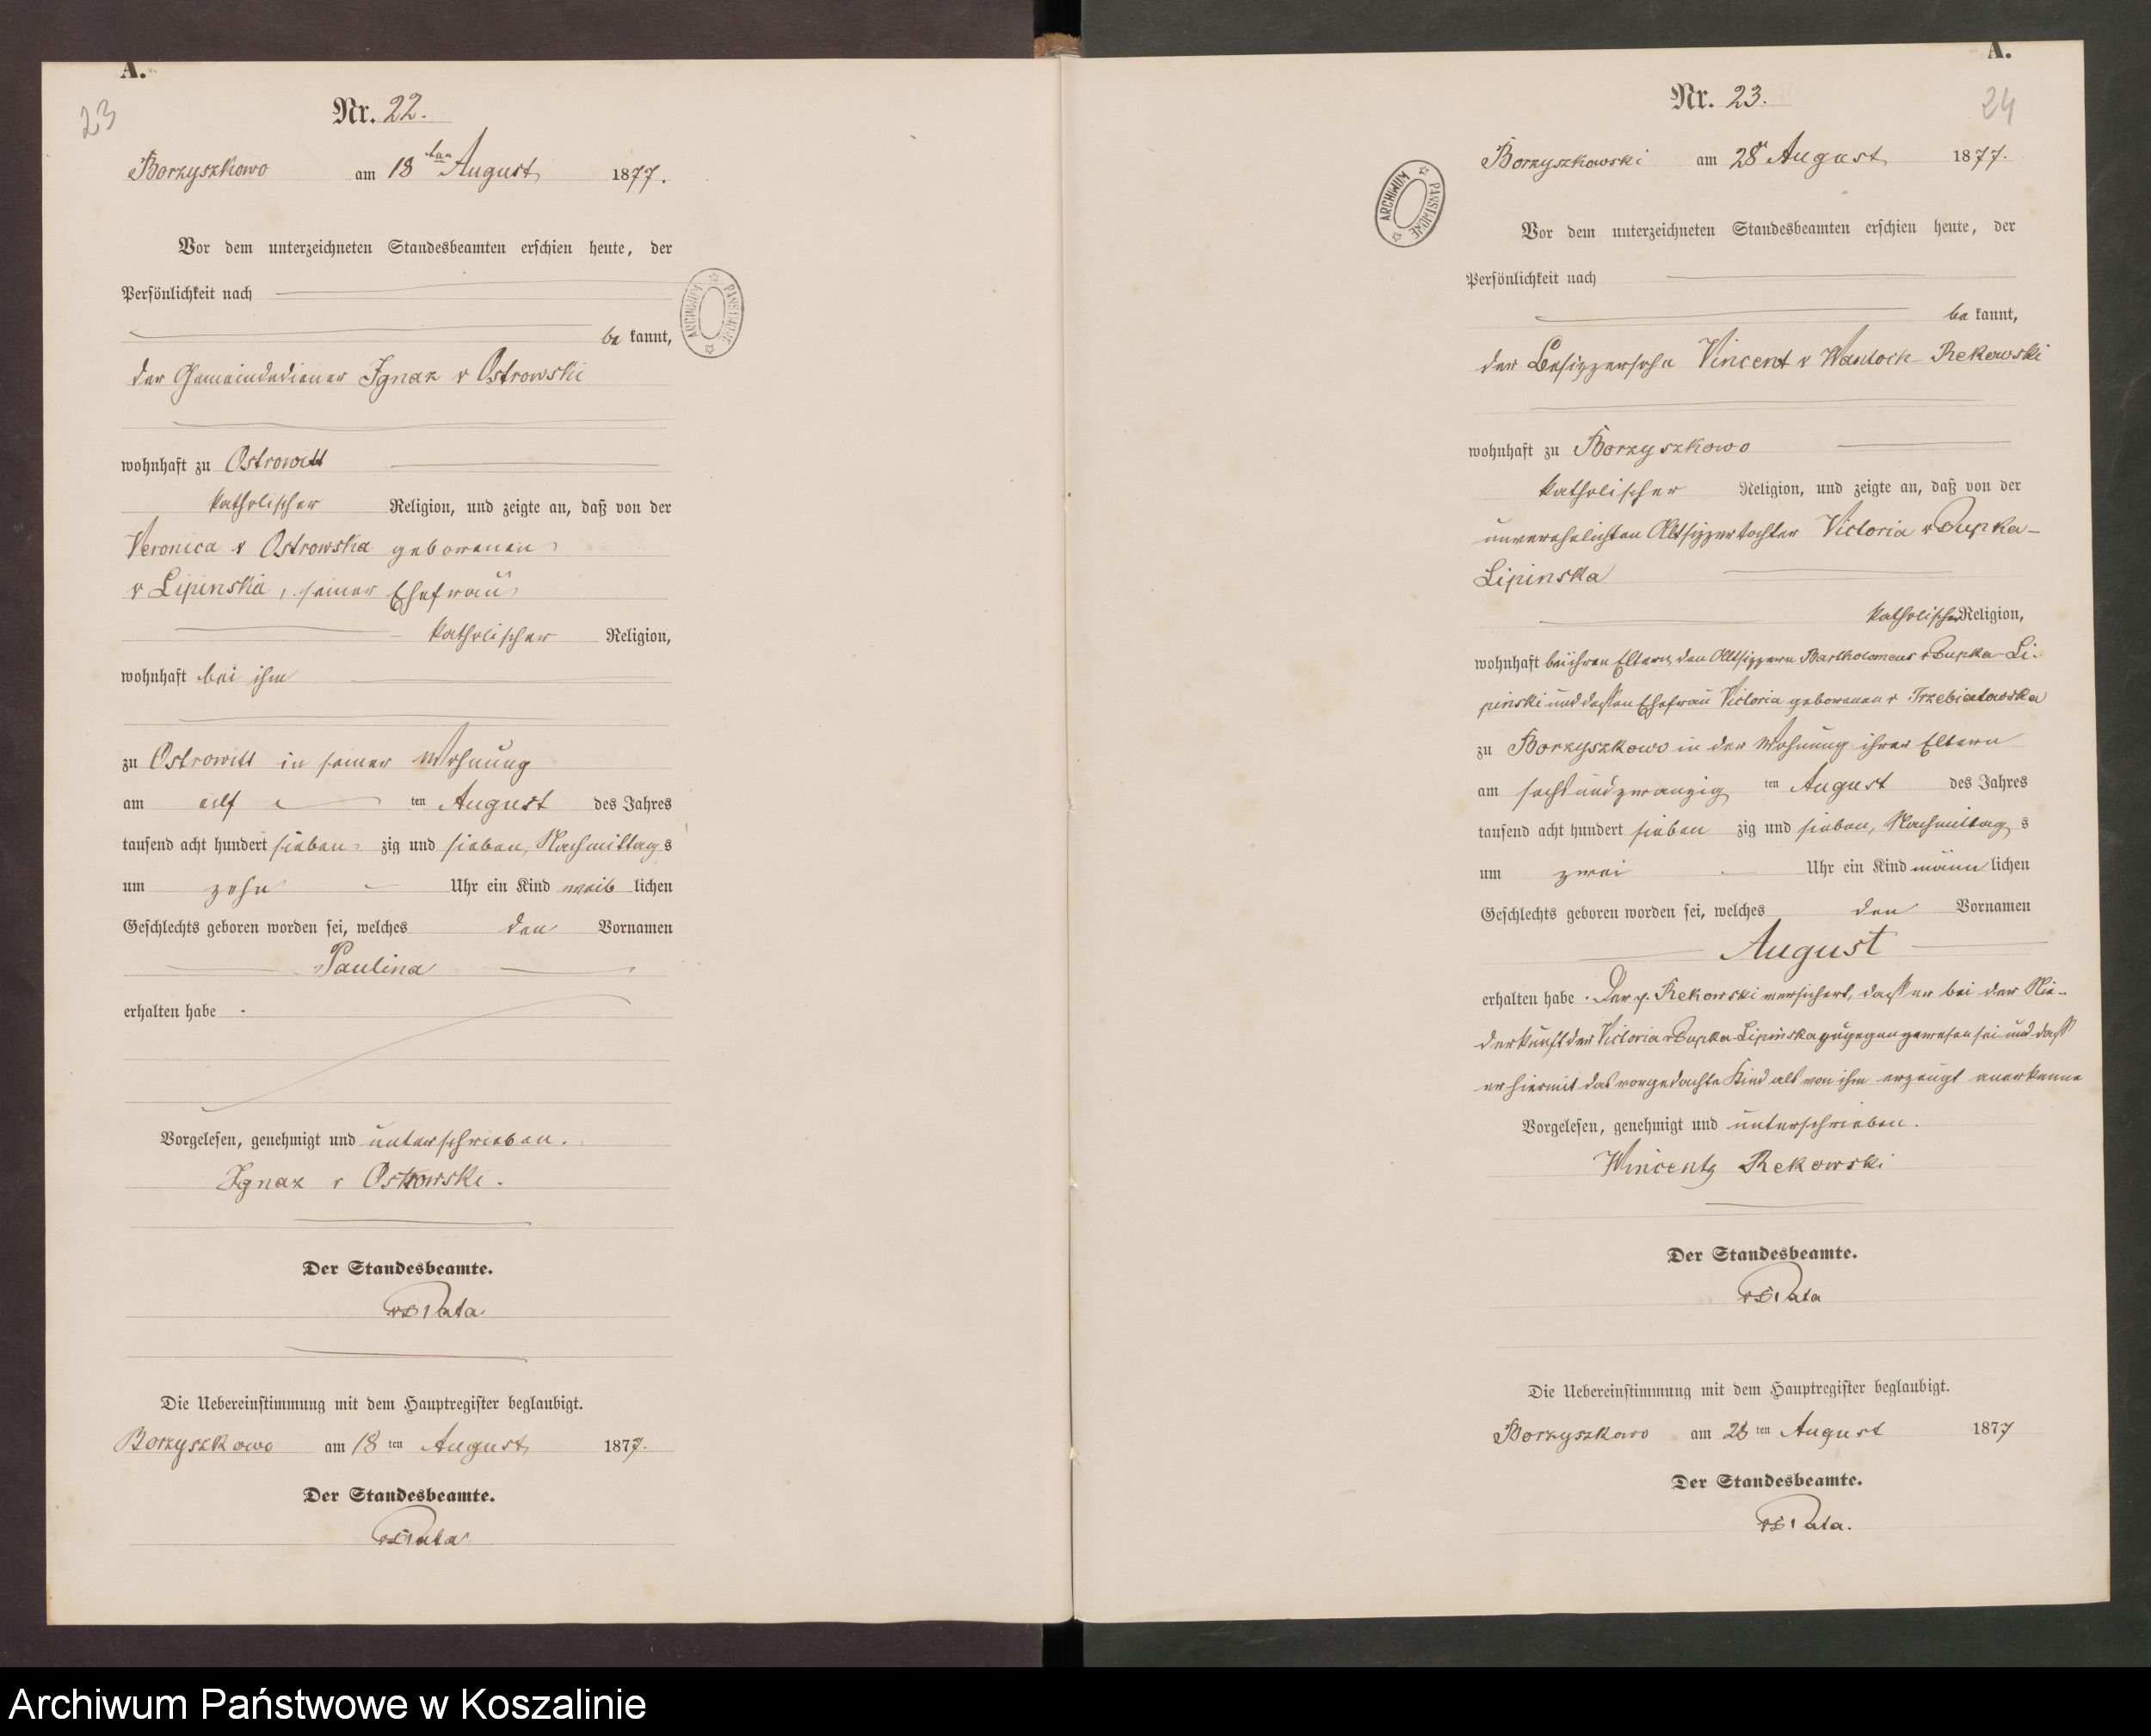 A.
23
Nr. 22.
Borzyszkowo am 18ten August 1877.
Vor dem unterzeichneten Standesbeamten erschien heute, der
Persönlichkeit nach
be kannt,
der Gemeindediener Ignaz v Ostrowski
wohnhaft zu Ostrowitt
katholischer Religion, und zeigte an, daß von der
Veronica v Ostrowska geborenen
v Lipinska, seiner Ehefrau
katholischer Religion,
wohnhaft bei ihm
zu Ostrowitt in seiner Wohnung
am eilf ten August des Jahres
tausend acht hundert sieben zig und sieben, Nachmittag s
um zehn Uhr ein Kind weib lichen
Geschlechts geboren worden sei, welches den Vornamen
Paulina
erhalten habe
Vorgelesen, genehmigt und unterschrieben.
Ignaz v Ostrowski.
Der Standesbeamte.
Die Uebereinstimmung mit dem Hauptregister beglaubigt.
Borzyszkowo am 18 ten August 1877.
Der Standesbeamte.
ARCHIWUM PAŃSTWOWE
A.
24
Nr. 23.
Borzyszkowski am 28 August 1877.
Vor dem unterzeichneten Standesbeamten erschien heute, der
Persönlichkeit nach
be kannt,
der Besitzersohn Vincent v Wantoch-Rekowski
wohnhaft zu Borzyszkowo
katholischer Religion, und zeigte an, daß von der
unverehelichten Altsitzertochter Victoria v Dupka-
Lipinska
katholischer Religion,
wohnhaft bei ihren Eltern, den Altsitzern Bartholomeus v Dupka-Li-
pinski und dessen Ehefrau Victoria geborenen v Trzebiatowska
zu Borzyszkowo in der Wohnung ihrer Eltern
am sechsundzwanzig ten August des Jahres
tausend acht hundert sieben zig und sieben, Nachmittag s
um zwei Uhr ein Kind männ lichen
Geschlechts geboren worden sei, welches den Vornamen
August
erhalten habe. Der p. Rekowski versichert, dass er bei der Nie-
derkunft der Victoria v Dupka-Lipinska zugegen gewesen sei und dass
er hiermit das vorgedachte Kind als von ihm erzeugt anerkenne
Vorgelesen, genehmigt und unterschrieben.
Wincenty Rekowski
Der Standesbeamte.
Die Uebereinstimmung mit dem Hauptregister beglaubigt.
Borzyszkowo am 28 ten August 1877
Der Standesbeamte.
ARCHIWUM PAŃSTWOWE
Archiwum Państwowe w Koszalinie